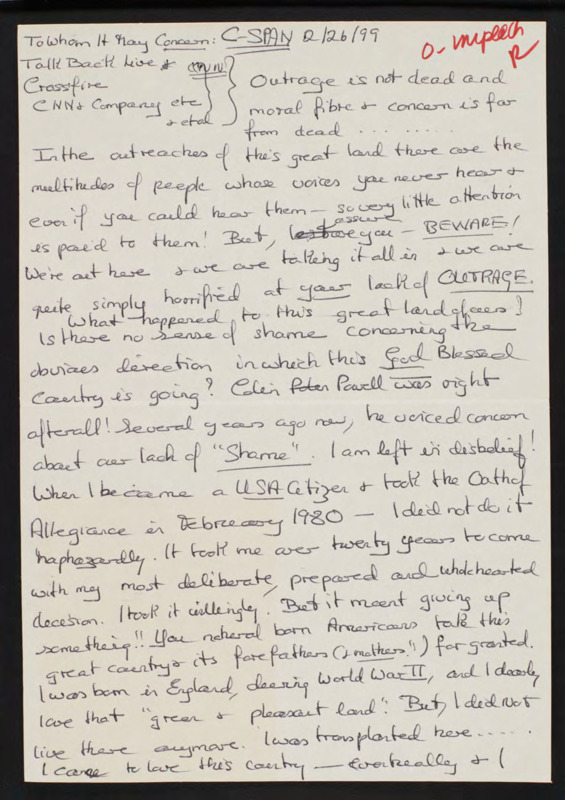 To Whom It May Concern: C-SPAN 2/26/99
O- impeach
R
Talk Back Live & CNN
Crossfire
CNN & Company etc
& etal
Outrage is not dead and
moral fibre & concern is far
from dead . . . . . . . .
In the outreaches of this great land there are the
multitudes of people whose voices you never hear &
even if you could hear them — so very little attention
is paid to them! But, assure you — BEWARE!
We're out here & we are taking it all in & we are
quite simply horrified at your lack of OUTRAGE.
What happened to this great land of ours!
Is there no sense of shame concerning the
obvious direction in which this God Blessed
Country is going? Colin Powell was right
afterall! Several years ago now, he voiced concern
about our lack of "Shame". I am left in disbelief!
When I became a USA Citizen & took the Oath of
Allegiance in February 1980 — I did not do it
haphazardly. It took me over twenty years to come
with my most deliberate, prepared and wholehearted
decision. I took it willingly. But it meant giving up
something!! You natural born Americans take this
great country & its forefathers (& mothers!") for granted.
I was born in England, during World War II, and I dearly
love that "green & pleasant land". But, I did not
live there anymore. I was transplanted here . . . . .
I came to love this country — eventually & I